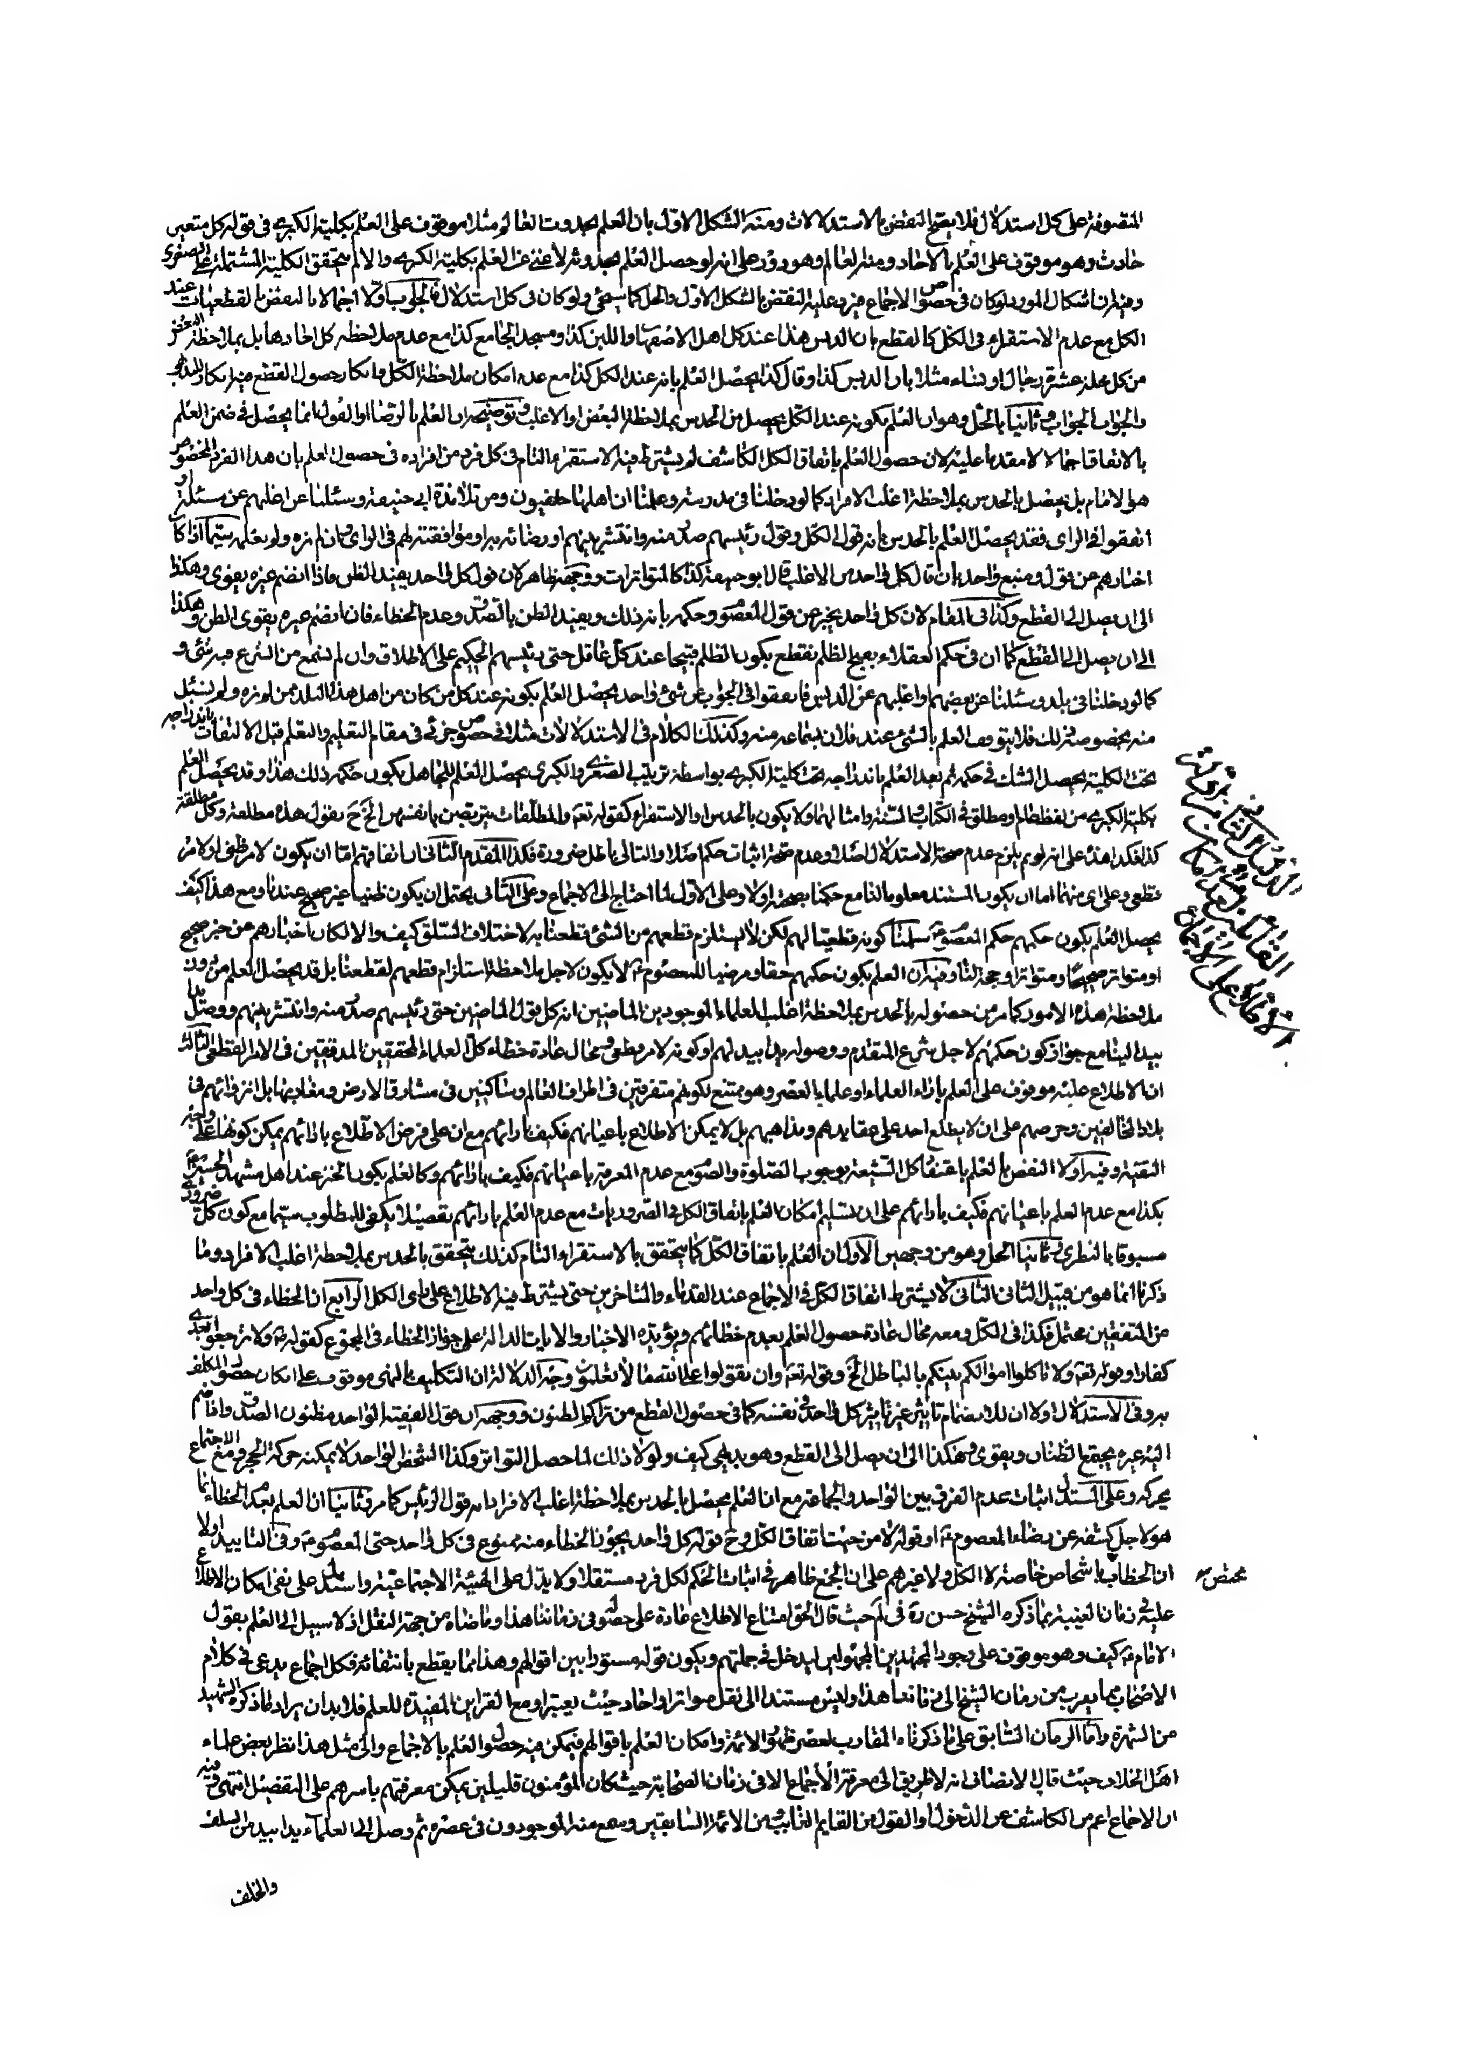 المتصوفة على كل استدلال فلا يصح النقض بالاستدلالات ومنه الشكل الاول بان العلم بحدوث العالم مثلا موقوف على العلم بكلية الكبرى في قوله كل متغير
حادث وهو موقوف على العلم بالاحاد ومنها العالم وهو دور على انه لو حصل العلم بحدوثه لأغنى عن العلم بكلية الكبرى والا لم يتحقق الكلية المشتملة على الصغرى
وفيه ان اشكال الدور لو كان في خصوص الاجماع فيرد عليه النقض بالشكل الاول والحل كما سيجئ ولو كان في كل استدلال فالجواب اولا اجمالا بالنقض بالقطعيات عند
الكل مع عدم الاستقراء في الكل كالقطع بان الدبس هذا عند كل اهل الاصفهان واللبن كذا ومسجد الجامع كذا مع عدم ملاحظة كل احادها بل بملاحظة البعض
من كل محلة عشرة رجال او نساء مثلا بان الدبس كذا وقال كذا يحصل العلم بانه عند الكل كذا مع عدم امكان ملاحظة الكل فانكار حصول القطع فيه انكار للبداهة
والجواب الجواب وثانيا بالحل وهو ان العلم بكونه عند الكل يحصل من الحدس بملاحظة البعض او الاغلب وتوضيحه ان العلم بالرضا او القول انما يحصل في ضمن العلم
بالاتفاق اجمالا لا مقدما عليه لان حصول العلم باتفاق الكل الكاشف لم يشترط فيه الاستقراء التام في كل فرد من افراده في حصول العلم بان هذا الفرد المخصوص
هو الامام بل يحصل بالحدس بملاحظة اغلب الافراد كما لو دخلنا في مدرسة وعلمنا ان اهلها حنفيون ومن تلامذة ابي حنيفة وسئلنا عن اغلبهم عن مسئلة و
اتفقوا في الراي فقد يحصل العلم بالحدس بانه قول الكل وقول رئيسهم صدر منه وانتشر بينهم او رضائه به او موافقته لهم في الراي وان لم نره ولم نعلمه سيما اذا كان
اخبارهم عن قول ومنبع واحد بان قال كل واحد من الاغلب قال ابو حنيفة كذا كالمتواترات ووجهه ظاهر لان قول كل واحد يفيد الظن فاذا انضم غيره يقوى وهكذا
الى ان يصل الى القطع وكذا في المقام لان كل واحد يخبر عن قول المعصوم وحكمه بانه ذلك ويفيد الظن بالصدق وعدم الخطاء فان انضم غيره يقوى الظن وهكذا
الى ان يصل الى القطع كما ان في حكم العقلاء بقبح الظلم نقطع بكون الظلم قبيحا عند كل عاقل حتى رئيسهم الحكيم على الاطلاق وان لم نسمع من الشرع فيه شئ و
كما لو دخلنا في بلد وسئلنا عن بعضهم واغلبهم عن الدبس فاتفقوا في الجواب عن شئ واحد يحصل العلم بكونه عند كل من كان من اهل هذا البلد ممن لم نره ولم نسئل
منه بخصوصه ذلك فلا يتوقف العلم بالشئ عند فلان بسماعه منه وكذلك الكلام في الاستدلالات مثلا في خصوص جزئي في مقام التعليم والتعلم قبل الالتفات باندراجه
تحت الكلية يحصل الشك في حكمه ثم بعد العلم باندراجه تحت كلية الكبرى بواسطة ترتيب الصغرى والكبرى يحصل العلم للجاهل بكون حكمه ذلك هذا وقد يحصل العلم
بكلية الكبرى من لفظ عام او مطلق في الكتاب والسنة وامثالهما ولا يكون بالحدس او الاستقراء كقوله تعه والمطلقات يتربصن بانفسهن الخ ح يقول هذه مطلقة وكل مطلقة
كذا فكذا هذه على انه لو تم يلزم عدم صحة الاستدلال اصلا وعدم صحة اثبات حكم اصلا والتالي باطل ضرورة فكذا المقدم الثاني ان اتفاقهم اما ان يكون لامر ظني او لامر
قطعي وعلى اي منهما اما ان يكون المستند معلوما لنا مع حكمنا بصحته اولا وعلى الاول لما احتاج الى الاجماع وعلى الثاني يحتمل ان يكون ظنيا غير صحيح عندنا ومع هذا كيف
يحصل العلم بكون حكمهم حكم المعصوم سلمنا كونه قطعيا لهم لكن لا يستلزم قطعهم من الشئ قطعنا به لاختلاف السلق كيف والا لكان اخبارهم عن خبر صحيح
او متواتر صحيحا ومتواترا وحجة لنا وفيه ان العلم بكون حكمهم حقا ومرضيا للمعصوم لا يكون لاجل ملاحظة استلزام قطعهم لقطعنا بل قد يحصل العلم من دون
ملاحظة هذه الامور كما مر من حصوله بالحدس بملاحظة اغلب العلماء الموجودين الماضين انه كل قول الماضين حتى رئيسهم صدر منه وانتشر بينهم ووصل يدا
بيد الينا مع جواز كون حكمهم لاجل شرع المتقدم ووصوله يدا بيد لهم او كونه لامر قطعي ومحال عادة خطاء كل العلماء المحققين المدققين في الامر القطعي الثالث
ان الاطلاع عليه موقوف على العلم باراء العلماء او علماء العصر وهو ممتنع لكونهم متفرقين في اطراف العالم وساكنين في مشارق الارض ومغاربها بل انزوائهم في
بلاد المخالفين وحرصهم على ان لا يطلع احد على عقايدهم ومذاهبهم بل لا يمكن الاطلاع باعيانهم فكيف بارائهم مع ان على فرض الاطلاع بارائهم يمكن كونها على وجه
التقية وفيه اولا النقض بالعلم باعتقاد كل الشيعة بوجوب الصلوة والصوم مع عدم المعرفة باعيانهم فكيف بارائهم وكالعلم بكون الخبز عند اهل مشهد الحسين
بكذا مع عدم العلم باعيانهم فكيف بارائهم على ان تسليم امكان العلم باتفاق الكل في الضروريات مع عدم العلم بارائهم تفصيلا يكفى للمطلوب سيما مع كون كل ضروري
مسبوقا بالنظري وثانيا الحل وهو من وجهين الاول ان العلم باتفاق الكل كما يتحقق بالاستقراء التام كذلك يتحقق بالحدس بملاحظة اغلب الافراد وما
ذكرنا انما هو من قبيل الثاني الثاني لا يشترط اتفاق الكل في الاجماع عند القدماء والمتاخرين حتى يشترط فيه الاطلاع على راى الكل الرابع ان الخطاء في كل واحد
من المتفقين محتمل فكذا في الكل ومعه محال عادة حصول العلم بعدم خطائهم ويؤيده الاخبار والايات الدالة على جواز الخطاء في المجموع كقوله ولا ترجعوا بعدى
كفارا وقوله تعه ولا تاكلوا اموالكم بينكم بالباطل الخ وقوله تعه وان تقولوا على الله ما لا تعلمون وجه الدلالة ان التكليف بالنهى موقوف على امكان حصول المكلف
به وفي الاستدلال اولا ان للانضمام تاثير غير تاثير كل واحد في نفسه كما في حصول القطع من تراكم الظنون ووجهه ان قول الفقيه الواحد مظنون الصدق واذا ضم
اليه غيره يجتمع الظنان ويقوى وهكذا الى ان يصل الى القطع وهو بديهي كيف ولولا ذلك لما حصل التواتر وكذا الشخص الواحد لا يمكنه حركة الحجر ومع الاجتماع
يحركه وعلى المستدل اثبات عدم الفرق بين الواحد والجماعة مع ان العلم يحصل بالحدس بملاحظة اغلب الافراد بانه قول الرئيس كما مر وثانيا ان العلم بعدم الخطاء انما
هو لاجل كشفه عن رضاء المعصوم او قوله لا من حيث اتفاق الكل وح قوله كل واحد يجوز الخطاء منه ممنوع في كل واحد حتى المعصوم وفي التاييد اولا
ان الخطاب باشخاص خاصة لا الكل ولا غيرهم على ان الجمع ظاهر في اثبات الحكم لكل فرد مستقلا ولا يدل على الهيئة الاجتماعية واستدل على نفى امكان الاطلاع
عليه في زمان الغيبة بما ذكره الشيخ حسن ره في لم حيث قال الحق امتناع الاطلاع عادة على حصوله في زماننا هذا وما ضاهاه من جهة النقل اذ لا سبيل الى العلم بقول
الامام كيف وهو موقوف على وجود المجتهدين المجهولين ليدخل في جملتهم ويكون قوله مستورا بين اقوالهم وهذا مما يقطع بانتفائه فكل اجماع يدعى في كلام
الاصحاب مما يقرب من زمان الشيخ الى زماننا هذا وليس مستندا الى نقل متواتر او احاد حيث يعتبر او مع القراين المفيدة للعلم فلا بد ان يراد ما ذكره الشهيد
من الشهرة واما الزمان السابق على ما ذكرناه المقارب لعصر ظهور الائمة وامكان العلم باقوالهم فيمكن فيه حصول العلم بالاجماع والى مثل هذا نظر بعض علماء
اهل الخلاف حيث قال الانصاف انه لا طريق الى معرفة الاجماع الا في زمان الصحابة حيث كان المؤمنون قليلين يمكن معرفتهم باسرهم على التفصيل انتهى وفيه
ان الاجماع اعم من الكاشف عن الدخول او القول من القايم الغايب من الائمة السابقين وسمع منه الموجودون في عصره ثم وصل الى العلماء يدا بيد من السلف
والخلف
مختص